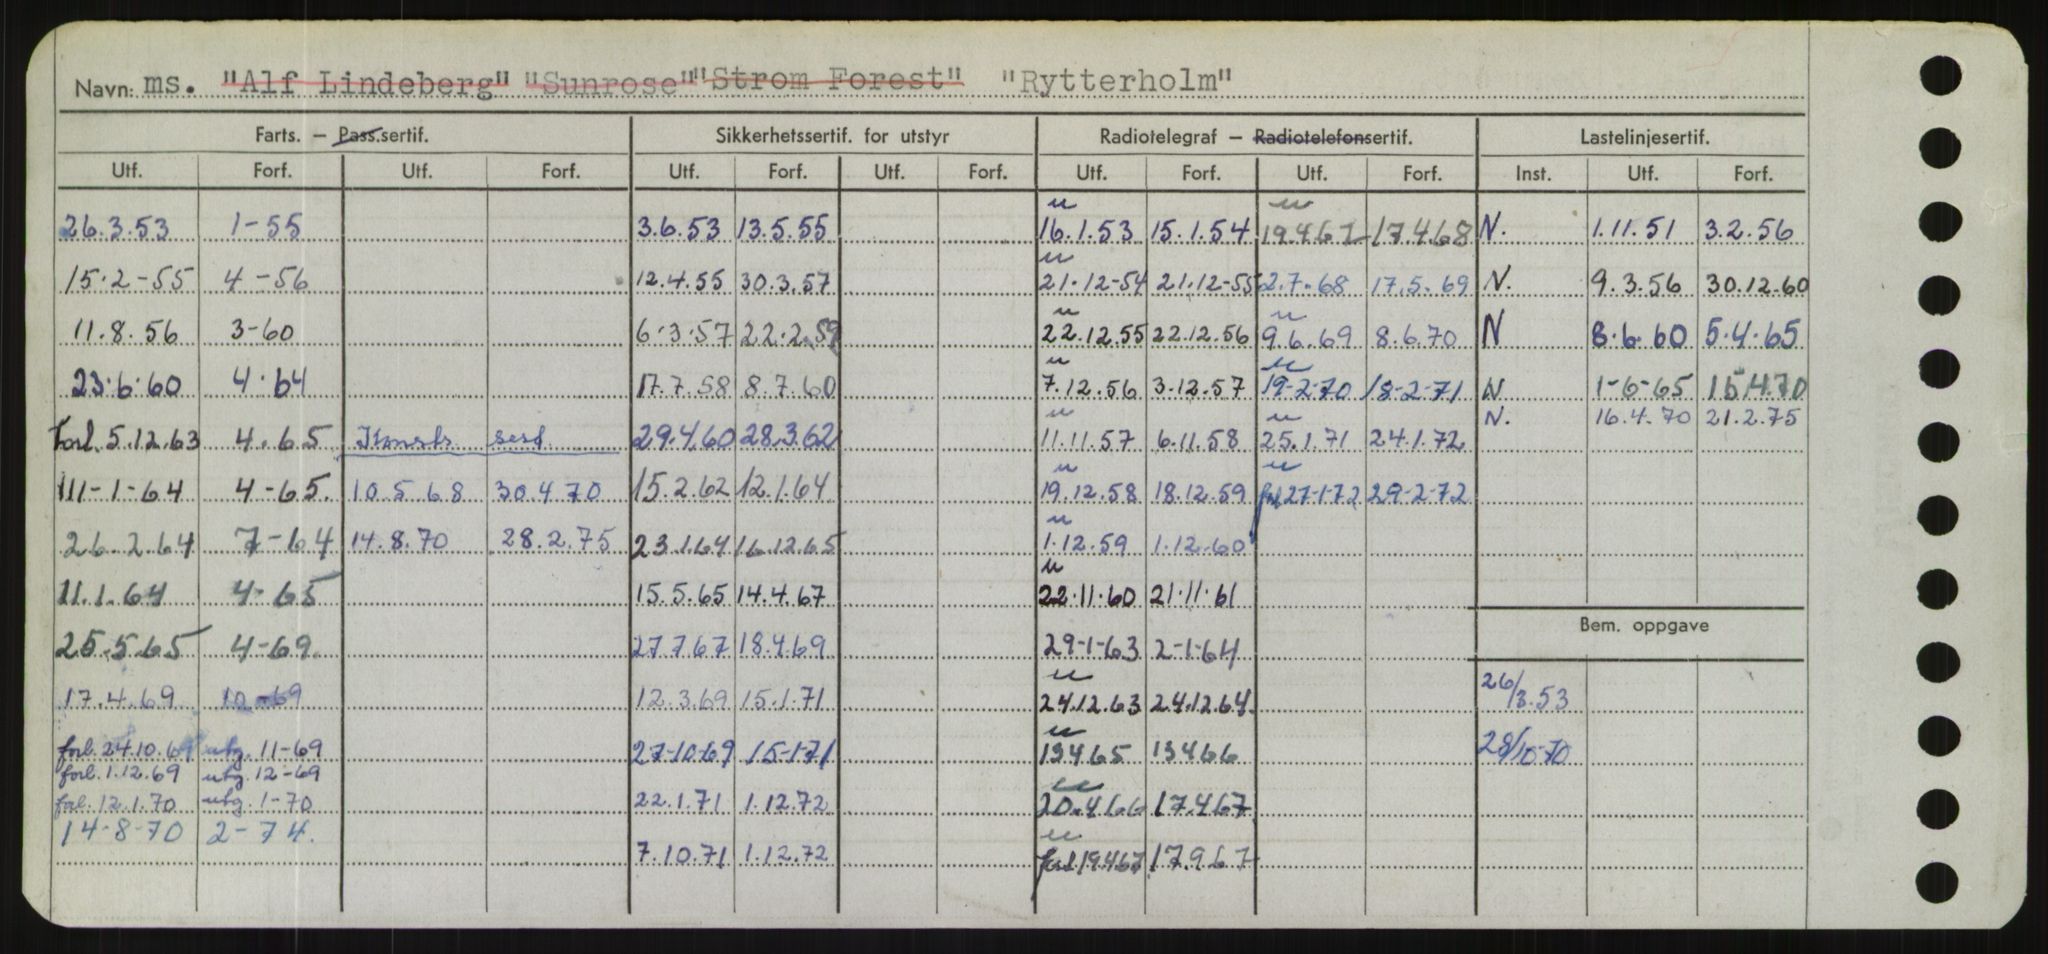 Navn: ms. "Alf Lindeberg" "Sunrose" "Strom Forest" "Rytterholm"
Farts. — Pass.sertif. Sikkerhetssertif. for utstyr Radiotelegraf — Radiotelefonsertif. Lastelinjesertif.
Utf. Forf. Utf. Forf. Utf. Forf. Utf. Forf. Utf. Forf. Utf. Forf. Inst. Utf. Forf.
26.3.53 1-55 3.6.53 13.5.55 16.1.53 15.1.54 19.4.67 17.4.68 N. 1.11.51 3.2.56
15.2-55 4-56 12.4.55 30.3.57 21.12-54 21.12-55 2.7.68 17.5.69 N. 9.3.56 30.12.60
11.8.56 3-60 6.3.57 22.2.59 22.12.55 22.12.56 9.6.69 8.6.70 N 8.6.60 5.4.65
23.6.60 4.64 17.7.58 8.7.60 7.12.56 3.12.57 19-2-70 18-2-71 N 1-6-65 15.4.70
N. 16.4.70 21.2.75
Forl. 5.12.63 4.65 sert 29.4.60 28.3.62 11.11.57 6.11.58 25.1.71 24.1.72
11-1-64 4-65. 10.5.68 30.4.70 15.2.62 12.1.64 19.12.58 18.12.59 27-1-72 29-2-72
26.2.64 7-64 14.8.70 28.2.75 23.1.64 16.12.65 1.12.59 1.12.60
11.1.64 4-65 15.5.65 14.4.67 22.11.60 21.11.61
25.5.65 4-69. 27.7.67 18.4.69 29-1-63 2-1-64
Bem. oppgave
17.4.69 10-69 12.3.69 15.1.71 24.12.63 24.12.64. 26/3.53
forl. 24.10.69 utg. 11-69 27-10-69 15-1-71 13465 13466 28/10-70
forl. 1.12.69 utg. 12-69
forl. 12.1.70 utg. 1-70 22.1.71 1.12.72 20.4.66 17.4.67
14-8-70 2-74.
7.10.71 1.12.72 19467 17.9.67